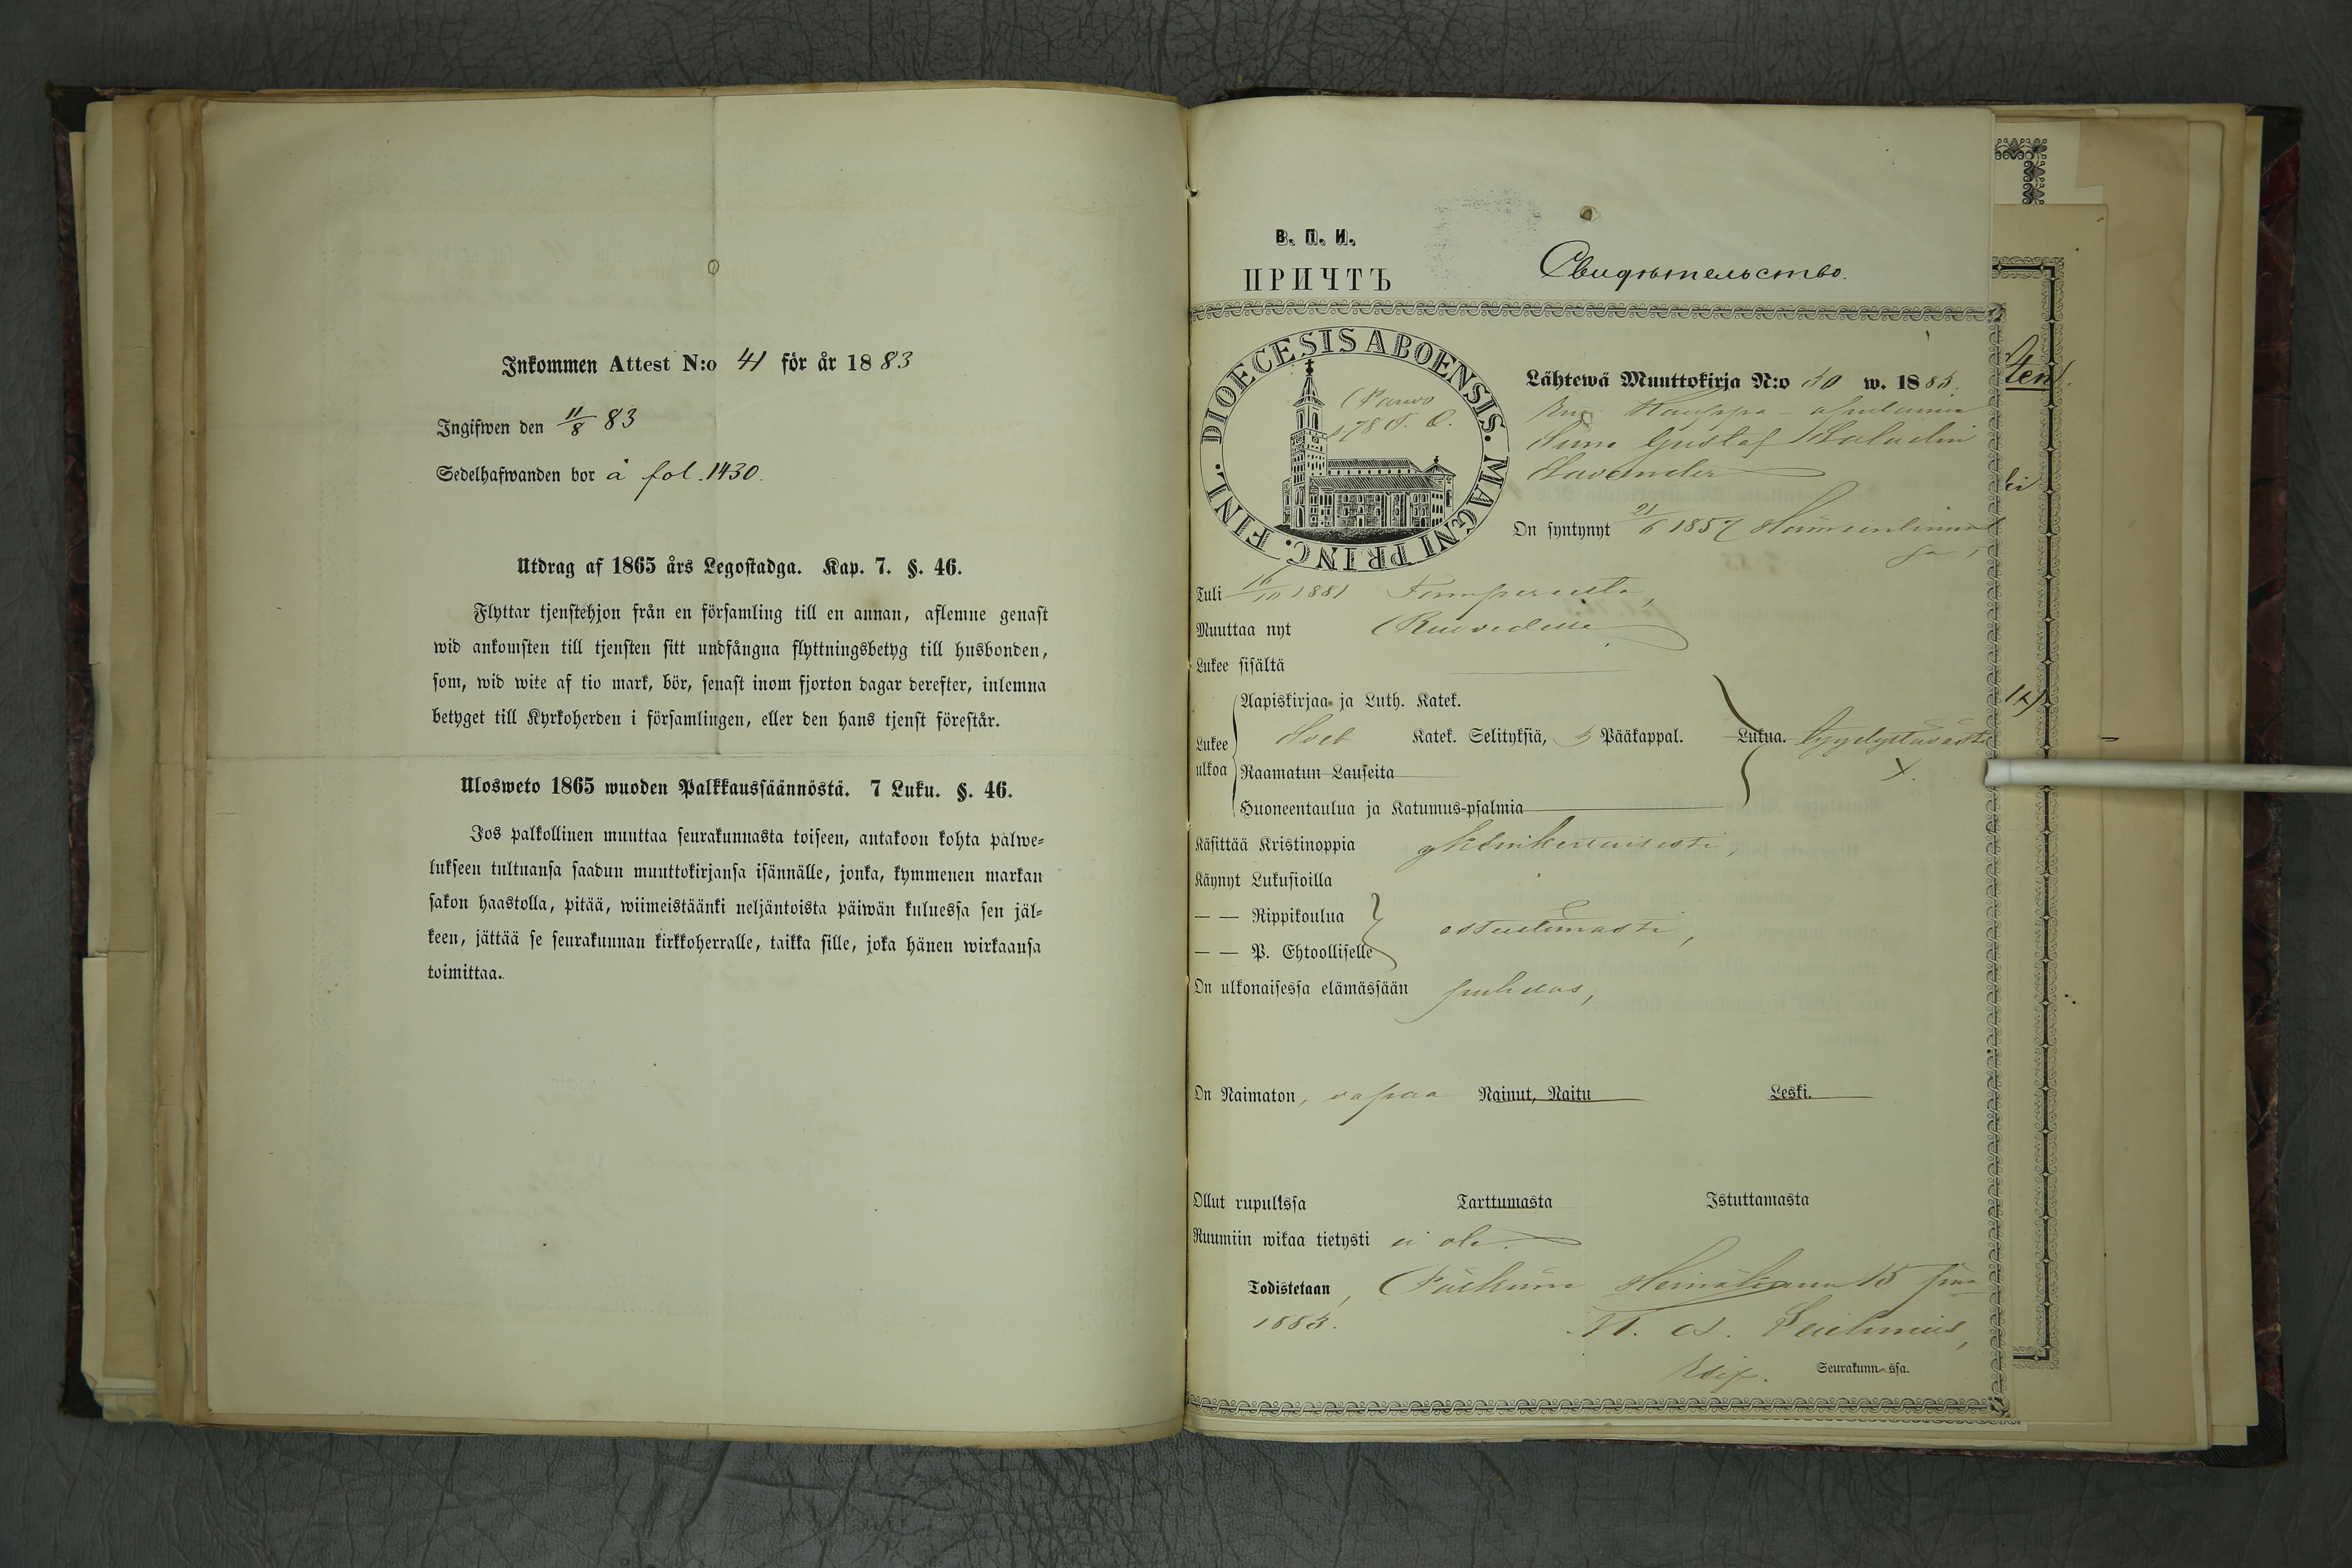 Inkommen Attest N:o 41 för år 1883
Ingifwen den 11/8 83
Sedelhafwanden bor å fol. 1430.
Utdrag af 1865 års Legostadga. Kap. 7. §. 46.
Flyttar tjenstehjon från en församling till en annan, aflemne genast
wid ankomsten till tjensten sitt undfångna flyttningsbetyg till husbonden,
som, wid wite af tio mark, bör, senast inom fjorton dagar derefter, inlemna
betyget till Kyrkoherden i församlingen, eller den hans tjenst förestår.
Ulosweto 1865 wuoden Palkkaussäännöstä. 7 Luku. §. 46.
Jos palkollinen muuttaa seurakunnasta toiseen, antakoon kohta palwe-
lukseen tultuansa saadun muuttokirjansa isännälle, jonka, kymmenen markan
sakon haastolla, pitää, wiimeistäänki neljäntoista päiwän kuluessa sen jäl-
keen, jättää se seurakunnan kirkkoherralle, taikka sille, joka hänen wirkaansa
toimittaa.
В. П. И.
ПРИЧТЪ
Свидѣтельство.
DIOECESIS ABOENSIS. MAGNI PRINC. FINL.
Lähtewä Muuttokirja N:o 50 w. 1883.
Gustaf
Lavender
On syntynyt 21/6 1857 Hämeenlinnas
sa,
Tuli 16/10 1881 Tampereelta,
Muuttaa nyt Ruovedelle
Lukee sisältä
Lukee ulkoa
Aapiskirjaa ja Luth. Katek.
Katek. Selityksiä, 5 Pääkappal. Lukua. tyydyttävästi
Raamatun Lauseita
Huoneentaulua ja Katumus-psalmia
Käsittää Kristinoppia yksinkertaisesti,
Käynyt Lukusioilla
— — Rippikoulua
— — P. Ehtoolliselle
On ulkonaisessa elämässään puhdas,
On Naimaton, vapaa Nainut, Naitu Leski.
Ollut rupulissa Tarttumasta Istuttamasta
Ruumiin wikaa tietysti ei ole.
Todistetaan, Heinäkuun 15 pnä
1883.
Seurakunnassa.